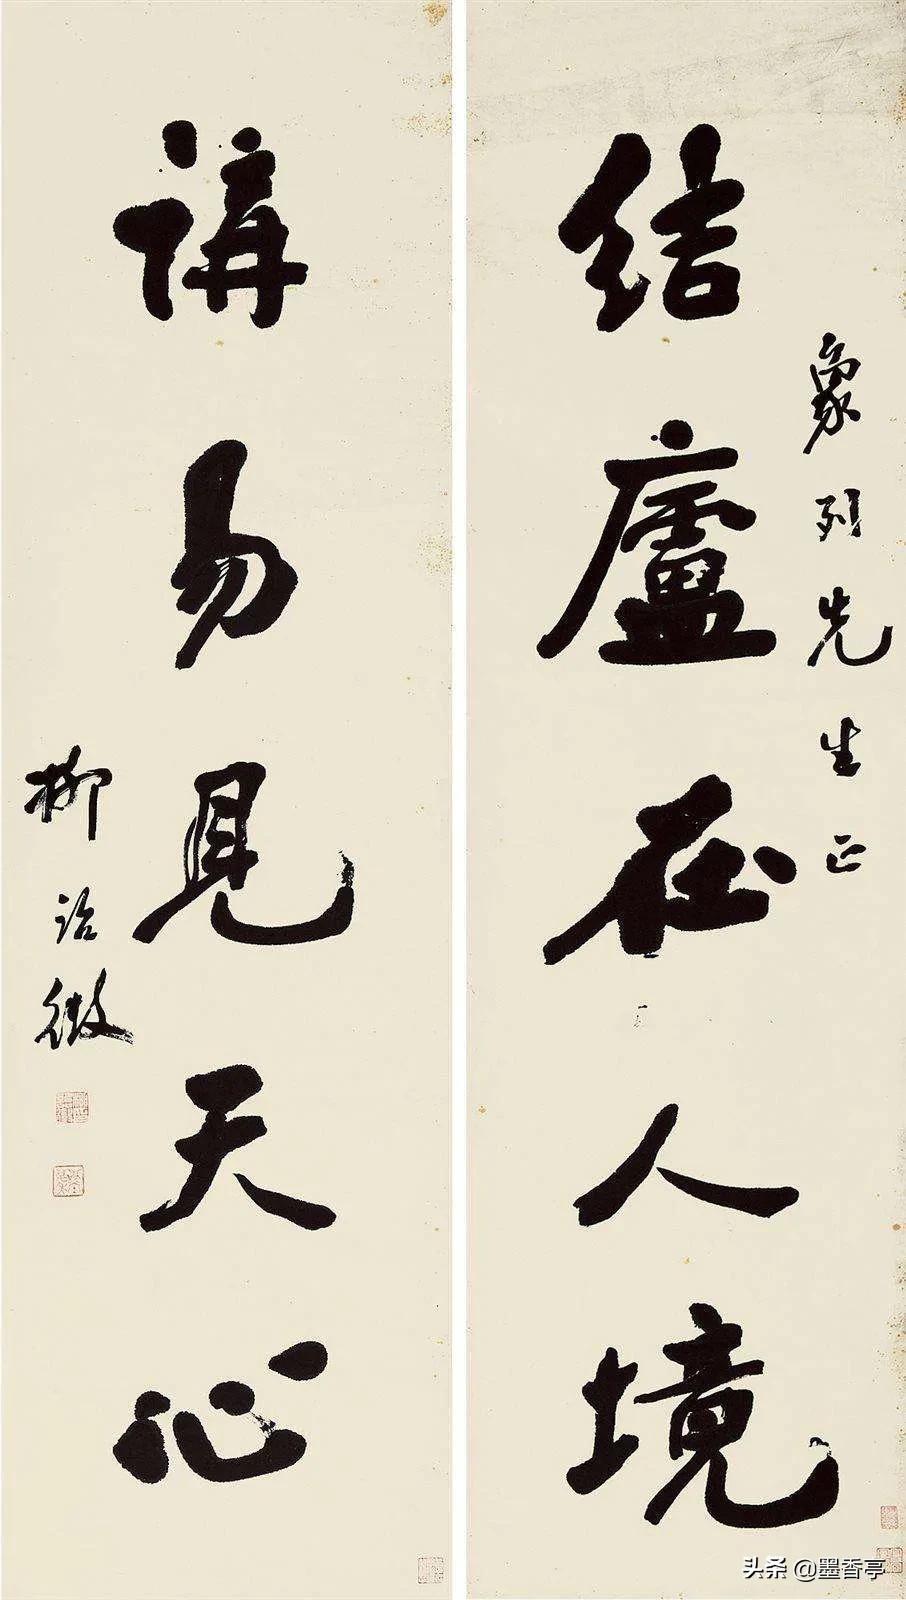 象列先生正
结廬在人境
講易見天心
柳詒徵
头条 @墨香亭